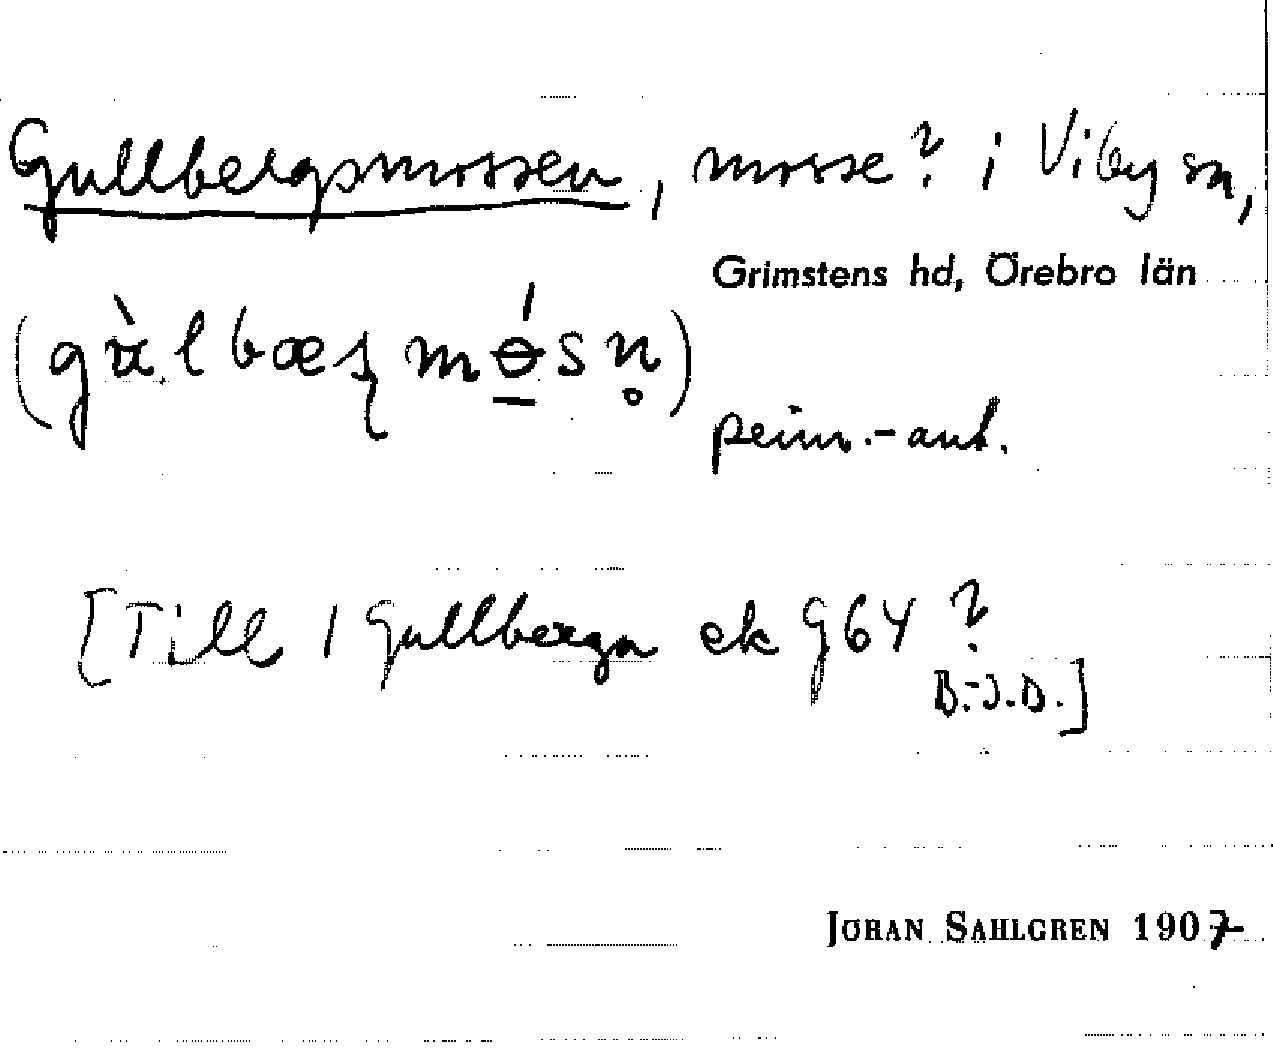 Gullbergsmossen, mosse? i Viby sn,
Grimstens hd, Örebro län
(gʉ̀lbæʂmɵ́sn̥)
penn.-ant.
[Till 1 Gullberga ek G64?
B.-J.D.]
JÖRAN SAHLGREN 1907